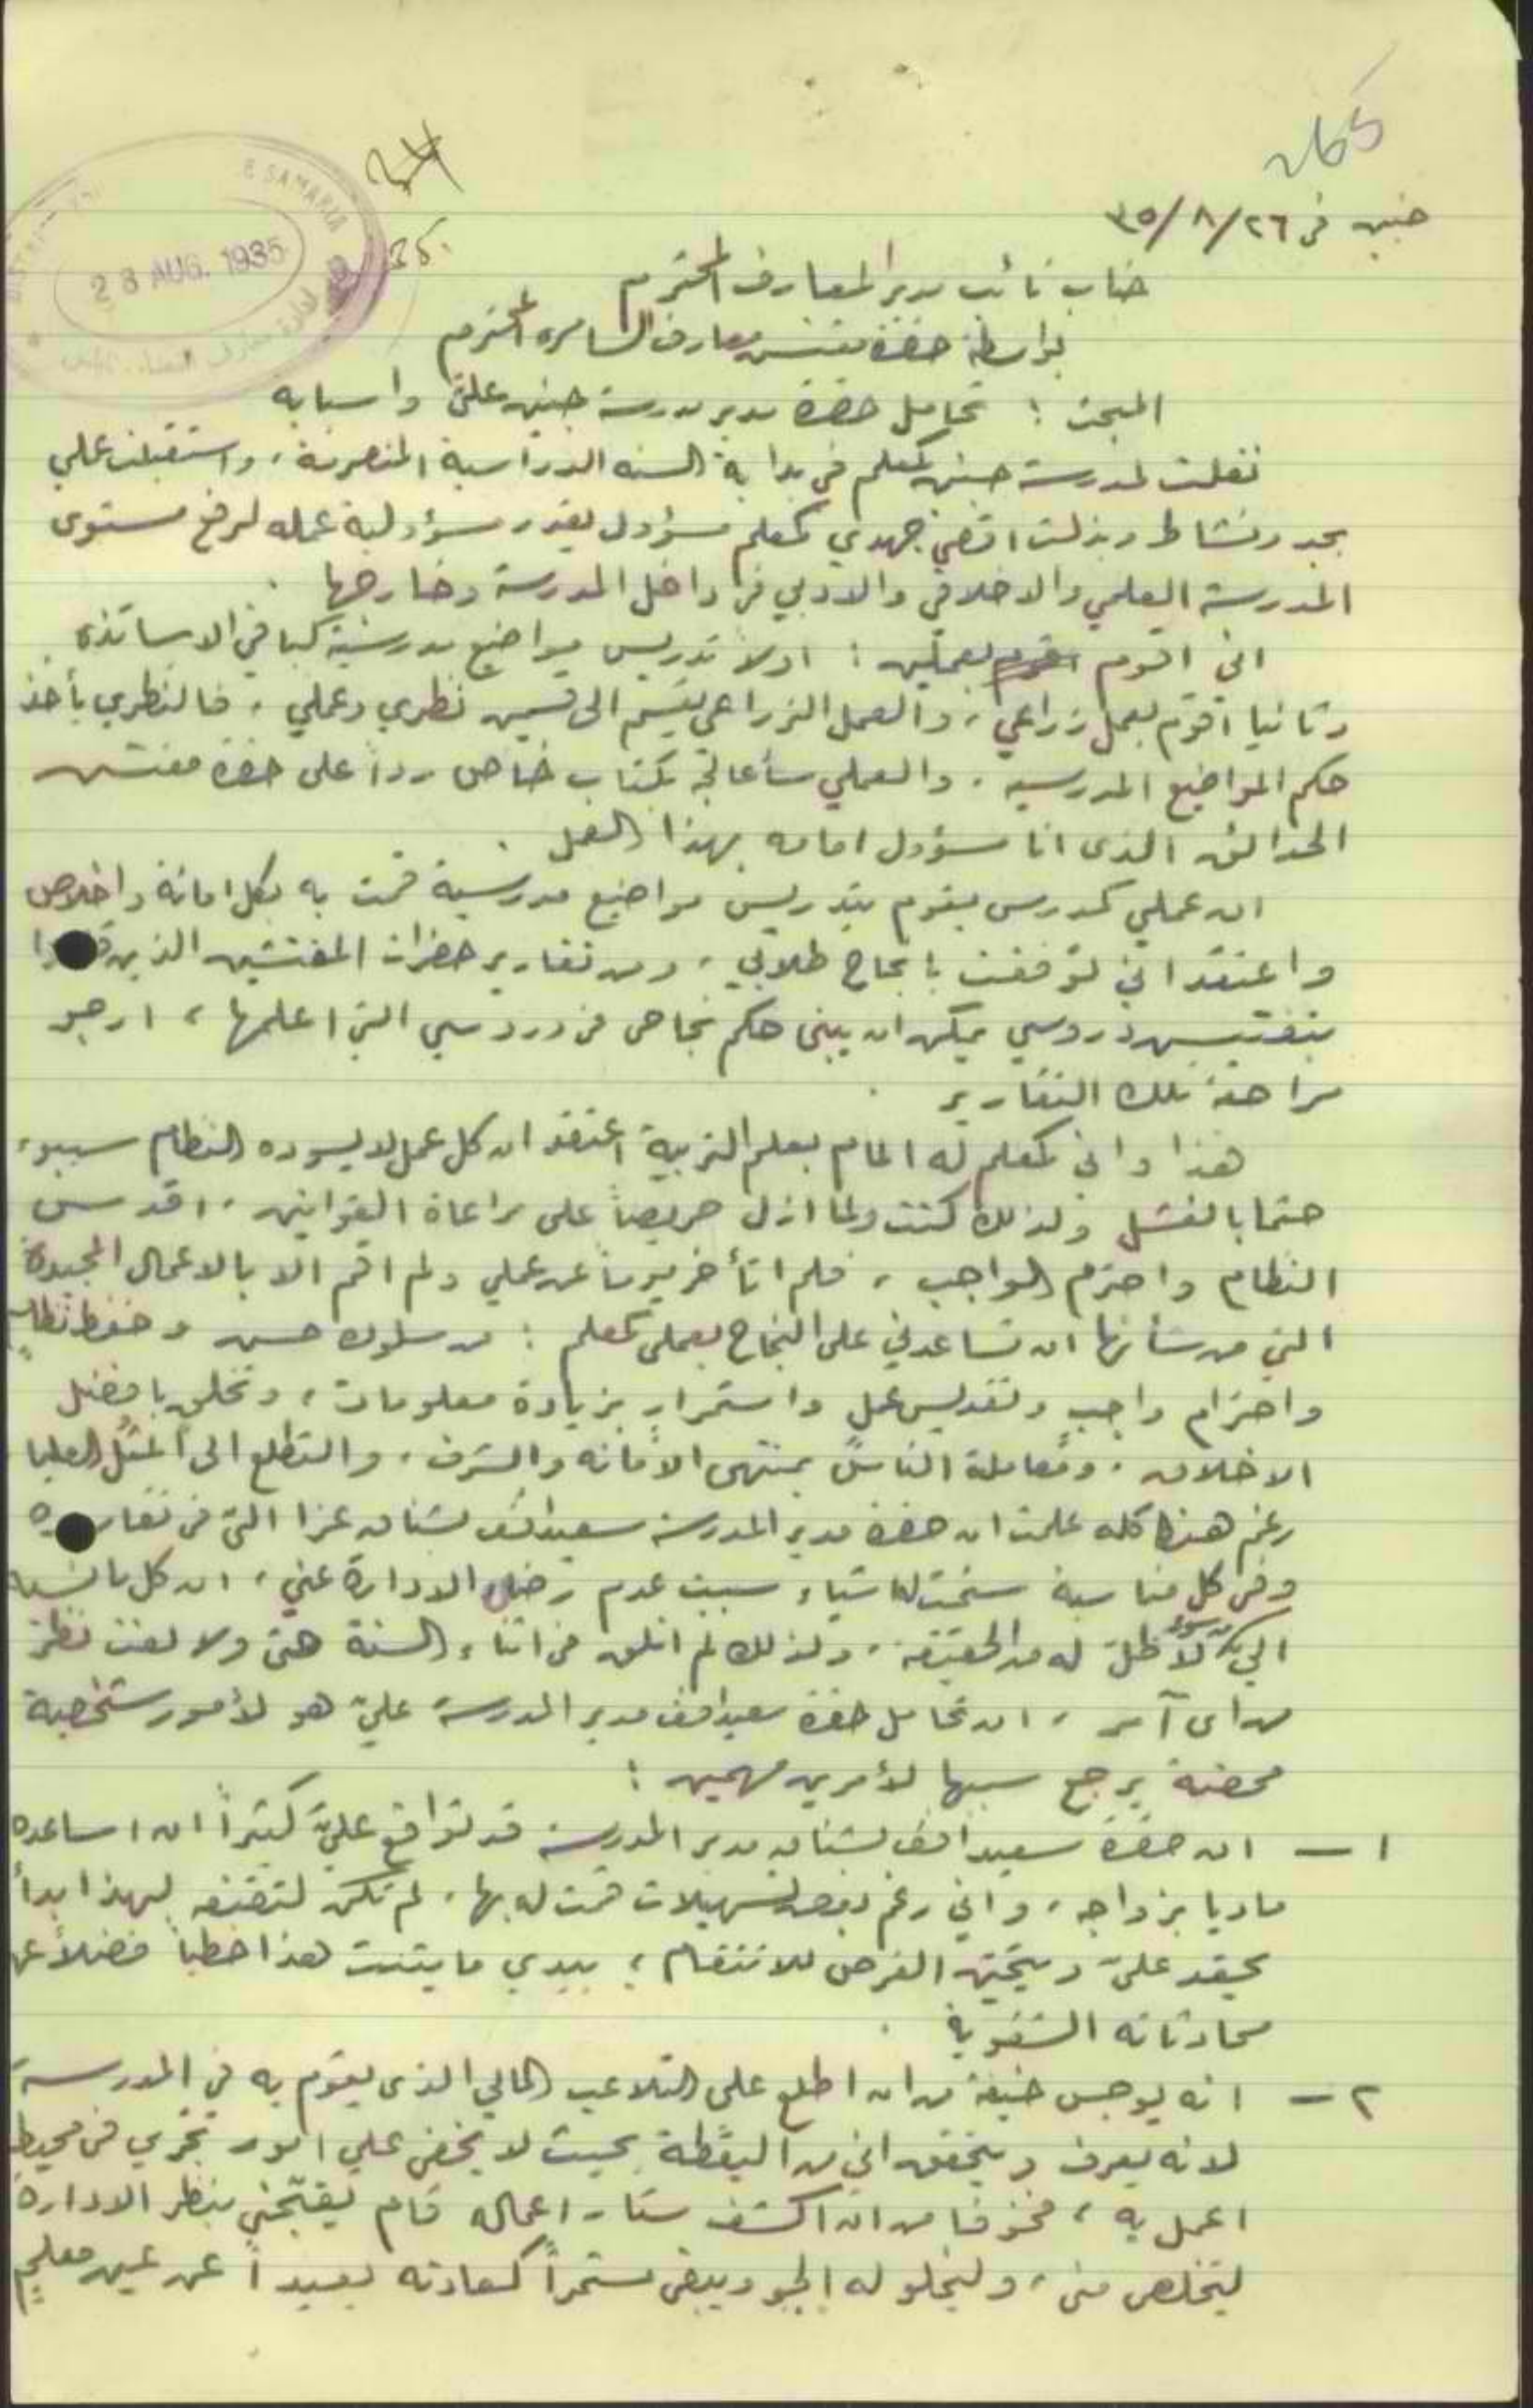 جنين في ٢٦/٨/٣٥
28 AUG. 1935
SAMARIA
جناب نائب مدير المعارف المحترم
بواسطة حضرة مفتش معارف السامره المحترم
المبحث : تحامل حضرة مدير مدرسة جنين عليّ واسبابه
نقلت لمدرسة جنين كمعلم في بداية السنه الدراسية المنصرمة، واستقبلت عملي
بجد ونشاط وبذلت اقصى جهدي كمعلم مسؤول يقدر مسؤولية عمله لرفع مستوى
المدرسة العلمي والاخلاقي والادبي في داخل المدرسة وخارجها .
اني اقوم بعملين : اولا تدريس مواضيع مدرسية كباقي الاساتذه
وثانيا اقوم بعمل زراعي، والعمل الزراعي يقسم الى قسمين نظري وعملي، فالنظري يأخذ
حكم المواضيع المدرسيه . والعملي سأعالجه بكتاب خاص رداً على حضرة مفتش
الحدائق الذى انا مسؤول امامه بهذا العمل .
ان عملي كمدرس يقوم بتدريس مواضيع مدرسية قمت به بكل امانة واخلاص
واعتقد اني توفقت بانجاح طلابي، ومن تقارير حضرات المفتشين الذين
بتفتيش دروسي يمكن ان يبنى حكم نجاحي في دروسي التي اعلمها، ارجو
مراجعة تلك التقارير .
هذا واني كمعلم له المام بعلم التربية اعتقد ان كل عمل لا يسوده النظام سيبوء
حتما بالفشل ولذلك كنت ولما ازل حريصاً على مراعاة القوانين، اقدس
النظام واحترم الواجب، فلم اتأخر يوماً عن عملي ولم اقم الا بالاعمال المجيدة
التي من شأنها ان تساعدني على النجاح بعملي كمعلم : من سلوك حسن وحفظ نظام
واحترام واجب وتقديس عمل واستمرار بزيادة معلومات، وتخلق بافضل
الاخلاق . ومعاملة الناس بمنتهى الأمانه والشرف . والتطلع الى المثل العليا
رغم هذا كله علمت ان حضرة مدير المدرسة سعيد افندي بشناق عزا اليّ في
وفي كل مناسبة سنحت له اشياء سببت عدم رضاء الادارة عني، ان كل ما نسبه
اليّ من سوء لا ظل له من الحقيقة، ولذلك لم اتلق في اثناء السنة حتى ولا لفت نظر
من اى آمر، ان تحامل حضرة سعيد افندي مدير المدرسة عليّ هو لأمور شخصية
محضة يرجع سببها لأمرين مهمين :
١ – ان حضرة سعيد افندي بشناق مدير المدرسة قد تواقع عليّ كثيراً ان اساعده
ماديا بزواجه، واني رغم بعض تسهيلات قمت له بها، لم تكن لتقنعه لهذا بدأ
يحقد عليّ ويتحيّن الفرص للانتقام، بيدي ما يثبت هذا خطياً فضلاً عن
محادثاته الشفوية .
٢ – انه يوجس خيفة من ان اطلع على التلاعب المالي الذى يقوم به في المدرسة
لانه يعرف ويتحقق اني من اليقظة بحيث لا يخفى علي امور تجري في محيط
اعمل به، فخوفا من ان اكشف ستار اعماله قام يقبّحني بنظر الادارة
ليتخلص مني، وليخلو له الجو ويبقى مستمراً كعادته بعيداً عن عين معلم